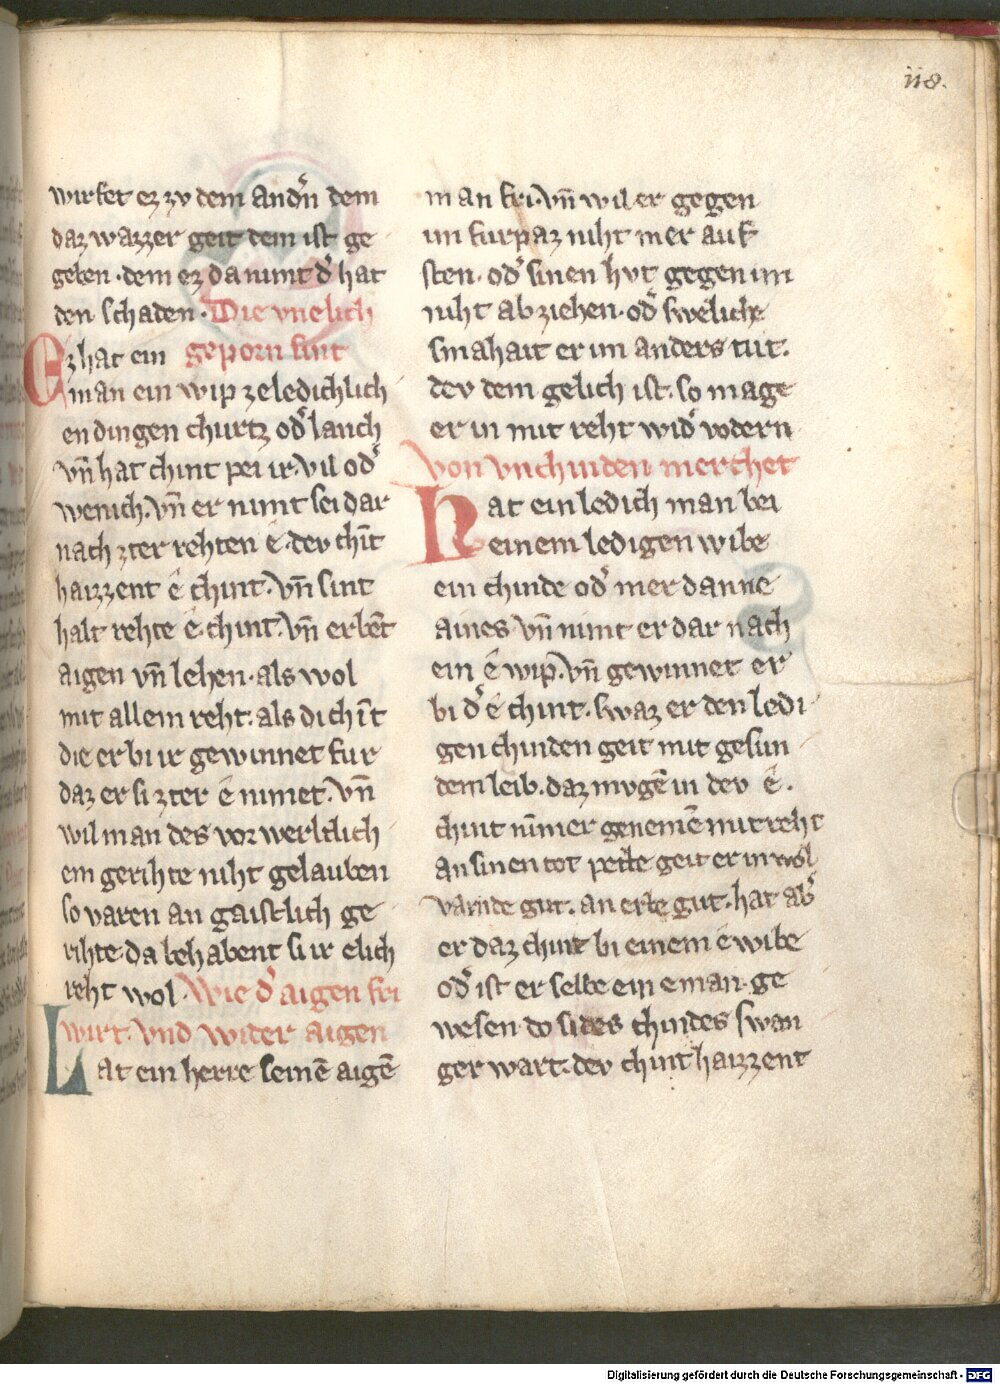 118.
wirfet ez zv dem andn̄ dem
daz wazzer geit dem ist ge
geben · dem ez da nimt d̕ hat
den schaden · Die vnelich
Ez hat ein geporn sint
man ein wip ze ledichlich
en dingen churtz od̕ lanch
vn̄ hat chint pei ir · vil od̕
wenich · vn̄ er nimt sei dar
nach zter rehten ê · dev chīt
haizzent ê chint · vn̄ sint
halt rehte ê · chint · vn̄ erbēt
aigen vn̄ lehen · als wol
mit allem reht · als di chīt
die er bi ir gewinnet fur
daz er si zter ê nimet · vn̄
wil man des vor werltlich
em gerihte niht gelauben
so varen an gaistlich ge
rihte · da behabent si ir elich
reht wol · Wie d̕ aigen fri
wirt · vnd wider aigen
Lat ein herre seinē aigē
man fri · vn̄ wil er gegen
im furpaz niht mer auf
sten · od̕ sinen hvt gegen im
niht abziehen · od̕ sweliche
smahait er im anders tut ·
dev dem gelich ist · so mage
er in mit reht wid̕ vodern
von vnchinden merchet
Hat ein ledich man bei
einem ledigen wibe
ein chinde od̕ mer danne
aines vn̄ nimt er dar nach
ein ê wip · vn̄ gewinnet er
bi d̕ ê chint · swaz er den ledi
gen chinden geit mit gesun
dem leib · daz mvgē in dev ê ·
chint nīmer genemē mit reht
an sinen tot pette geit er in wol
varnde gut · an erbe gut · hat ab̕
er daz chint bi einem ê wibe
od̕ ist er selbe ein e man · ge
wesen do si des chindes swan
ger wart · dev chint haizzent
Digitalisierung gefördert durch die Deutsche Forschungsgemeinschaft - DFG